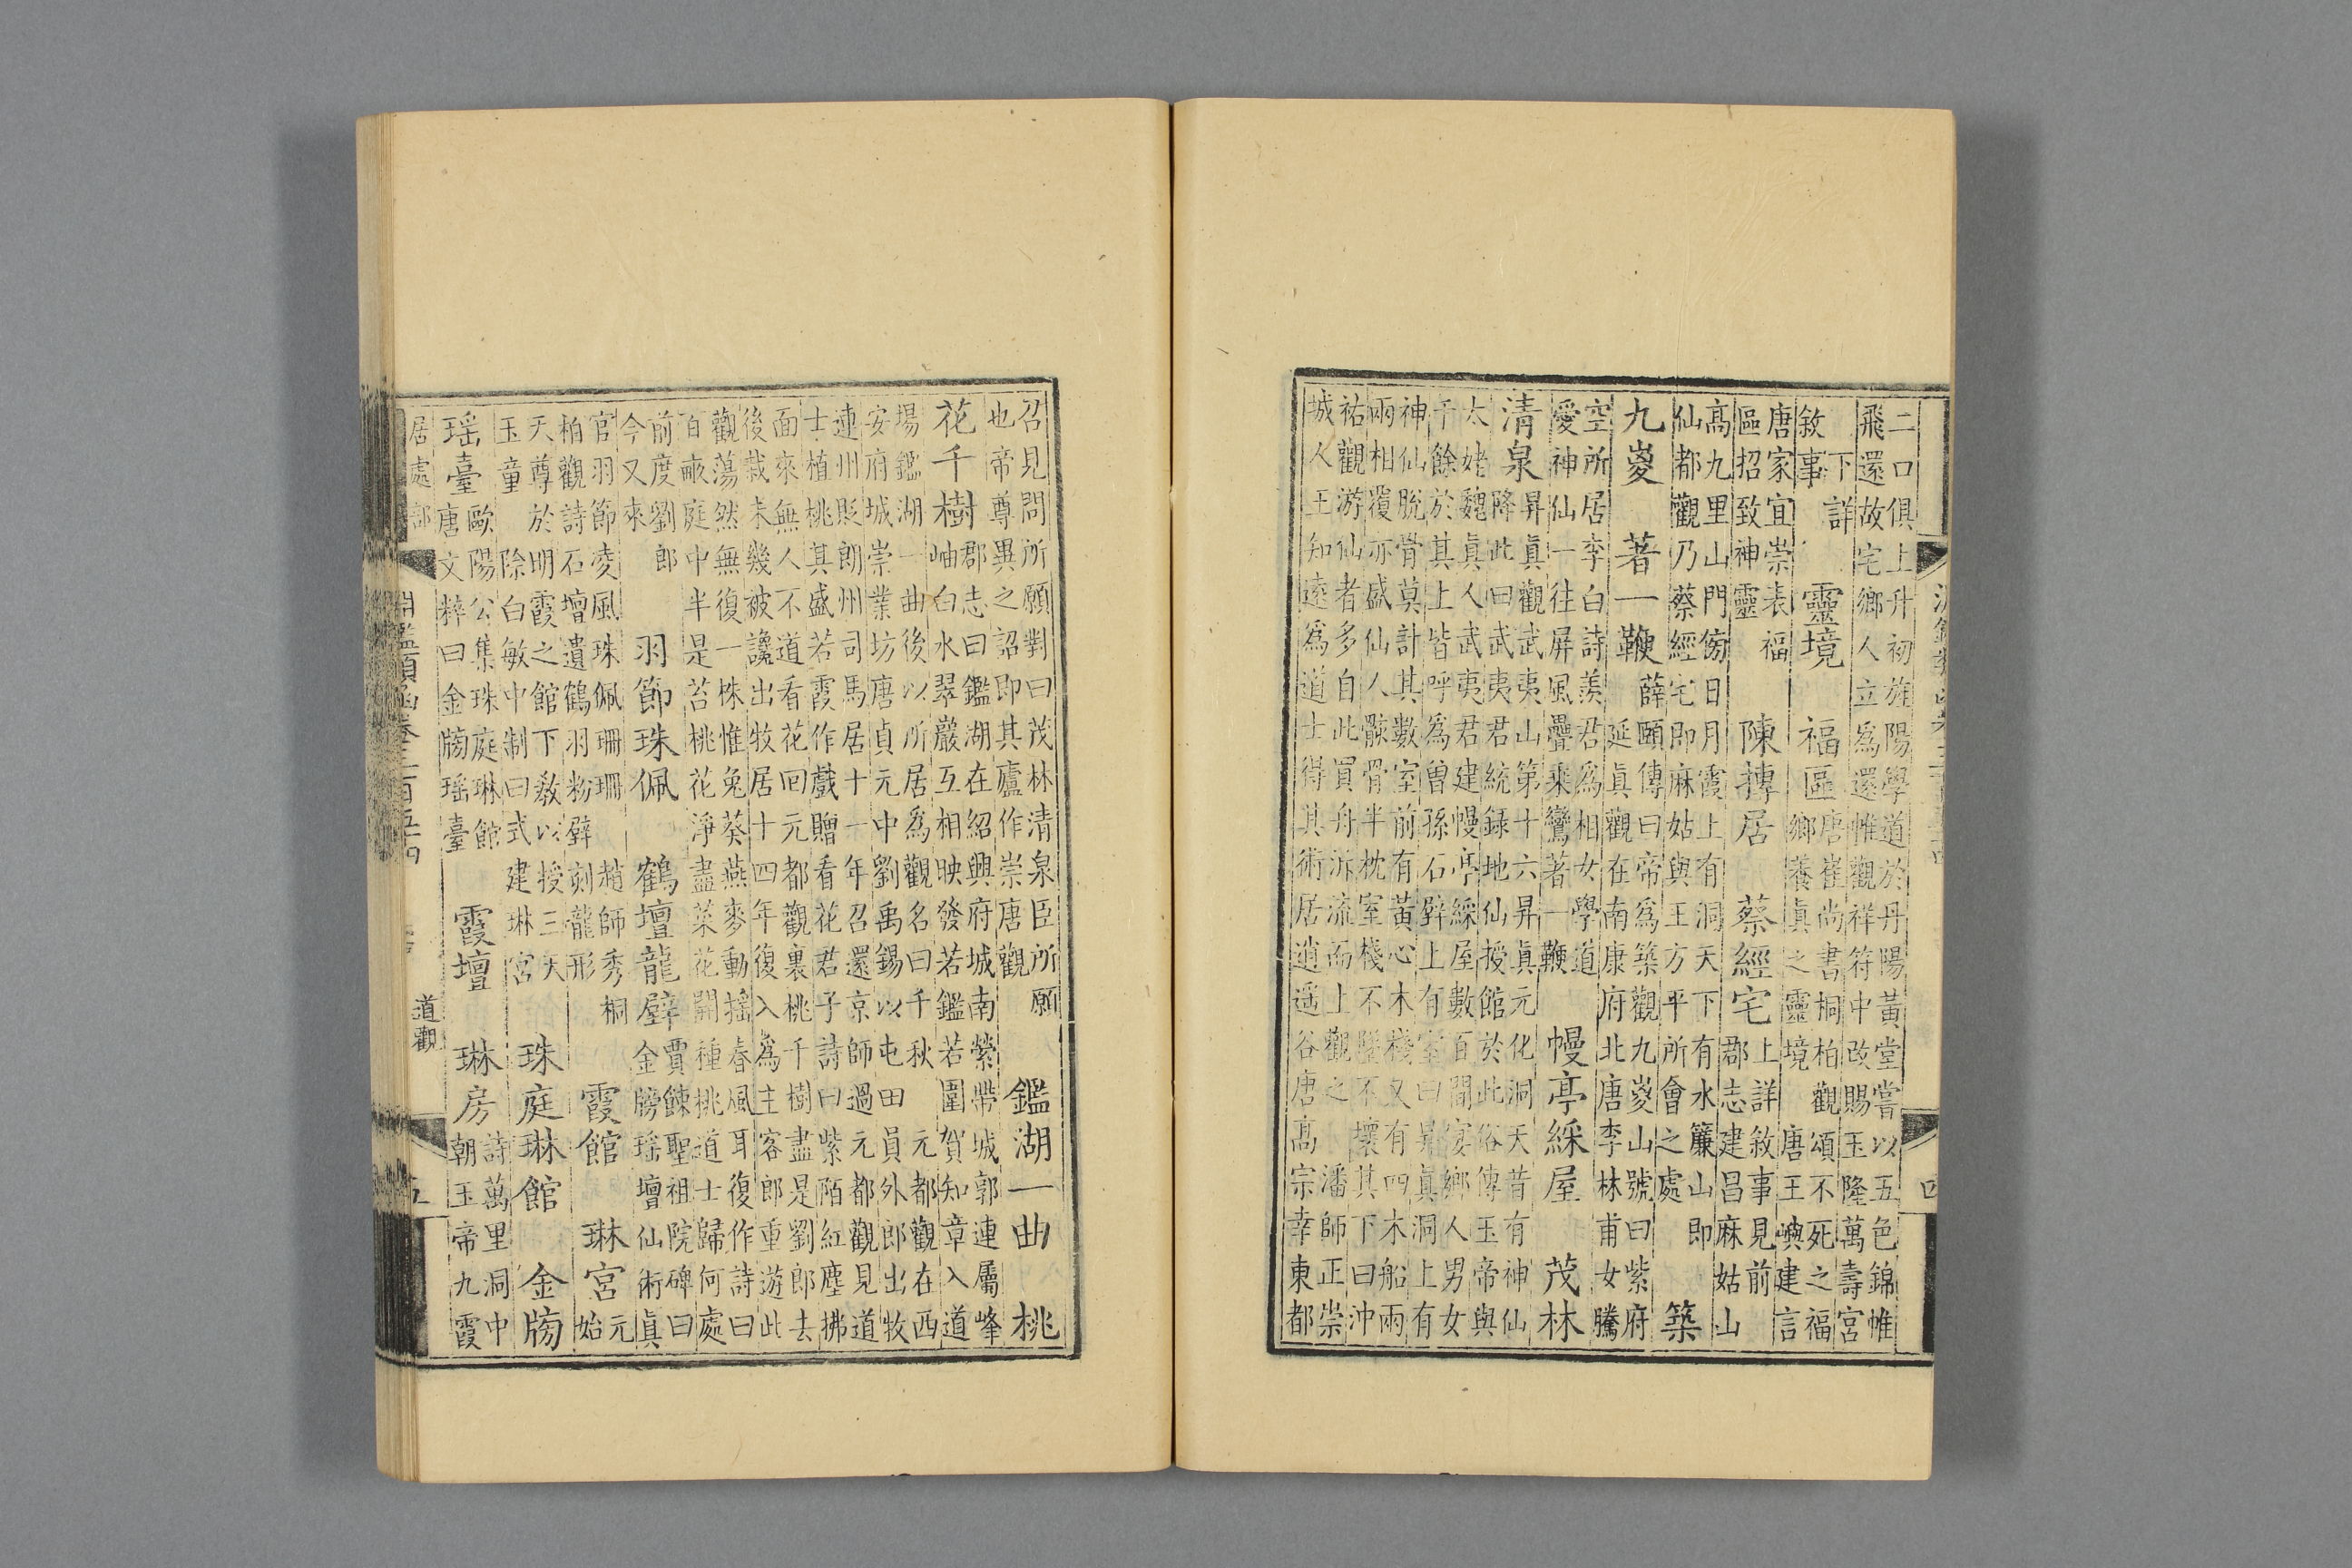 二口俱上升初旌陽學道於丹陽黃堂嘗以五色錦帷
飛還故宅鄉人立為還帷觀祥符中改賜玉隆萬壽宮
下詳
敘事
靈境
福區
唐崔尚書桐柏觀頌不死之福
鄉養真之靈境 唐王嶼建言
唐家宜崇表福
區招致神靈
陳摶居
蔡經宅
上詳敘事見前
郡志建昌麻姑山
高九里山門傍日月霞上有洞天下有水簾山即
仙都觀乃蔡經宅即麻姑與王方平所會之處
築
九嵏
著一鞭
薛頤傳曰帝為築觀九嵏山號曰紫府
延真觀在南康府北唐李林甫女騰
空所居李白詩羨君為相女學道
愛神仙一往屏風疊乘鸞著一鞭
幔亭綵屋
茂林
清泉
昇真觀武夷山第十六昇真元化洞天昔有神仙
降此曰武夷君統録地仙授館於此俗傳玉帝與
太姥魏真人武夷君建幔亭綵屋數百間宴鄉人男女
千餘於其上皆呼為曾孫石壁上有室曰昇真洞上有
神仙脫骨莫計其數室前有黃心木棧又有四木船兩
兩相覆亦盛仙人骸骨半枕室棧不墜不壞其下曰沖
祐觀游仙者多自此買舟泝流而上觀之 潘師正崇
城人王知遠為道士得其術居逍遙谷唐高宗幸東都
四
召見問所願對曰茂林清泉臣所願
也帝尊異之詔即其廬作崇唐觀
鑑湖一曲
桃
花千樹
郡志曰鑑湖在紹興府城南縈帶城郭連屬峰
岫白水翠巖互相映發若鑑若圖賀知章入道
場鑑湖一曲後以所居為觀名曰千秋 元都觀在西
安府城崇業坊唐貞元中劉禹錫以屯田員外郎出牧
連州貶朗州司馬居十一年召還京師過元都觀見道
士植桃其盛若霞作戲贈看花君子詩曰紫陌紅塵拂
面來無人不道看花回元都觀裏桃千樹盡是劉郎去
後栽未幾被讒出牧居十四年復入為主客郎重遊此
觀蕩然無復一株惟兔葵燕麥動搖春風耳復作詩曰
百畝庭中半是苔桃花淨盡菜花開種桃道士歸何處
前度劉郎
今又來
羽節珠佩
鶴壇龍壁
賈餗聖祖院碑曰
金牓瑶壇仙術真
官羽節凌風珠佩珊珊 趙師秀桐
柏觀詩石壇遺鶴羽粉壁刻龍形
霞館
琳宮
元
始
天尊於明霞之館下敎以授三天
玉童 除白敏中制曰式建琳宮
珠庭琳館
金牓
瑶臺
歐陽公集珠庭琳館
唐文粹曰金牓瑶臺
霞壇
琳房
詩萬里洞中
朝玉帝九霞
居處部
淵鑑類函卷三百五十四
道觀
五